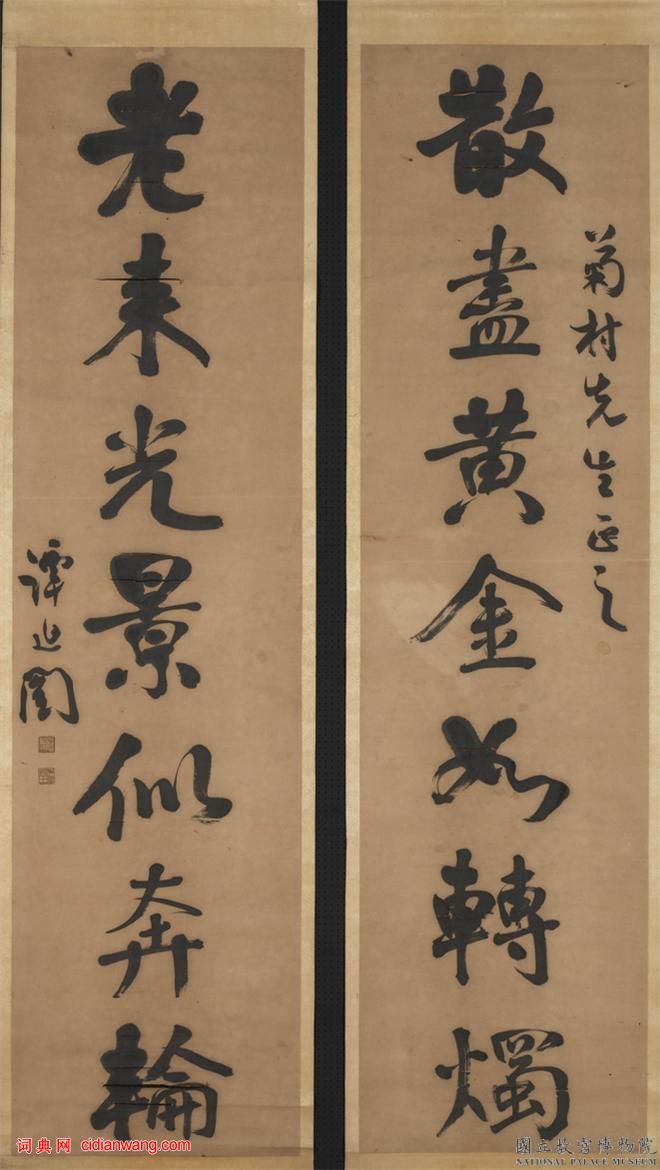 菊村先生正之
散盡黃金如轉燭
老来光景似奔輪
譚延闓
词典网 cidianwang.com
國立故宮博物院
NATIONAL PALACE MUSEUM